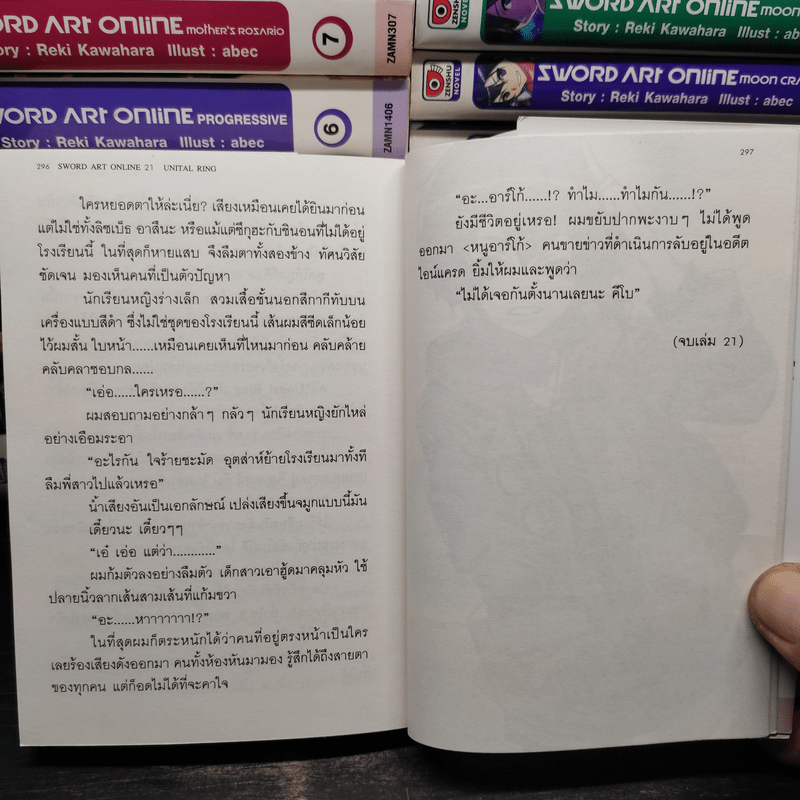 SWORD ART ONLINE MOTHER'S ROSARIO
ory : Reki Kawahara Illust : abec
7
ZAMN307
SWORD ART ONLINE PROGRESSIVE
Story : Reki Kawahara Illust : abec
6
ZAMN1406
ZENSHU
NOVEL
SWORD ART ONLINE MOON
Story : Reki Kawahara Illust : abec
ZENSHU
NOVEL
SWORD ART ONLINE MOON CRA
Story : Reki Kawahara Illust : abec
296 SWORD ART ONLINE 21 UNITAL RING
ใครหยอดตาให้ล่ะเนี่ย? เสียงเหมือนเคยได้ยินมาก่อน
แต่ไม่ใช่ทั้งลิซเบ็ธ อาสึนะ หรือแม้แต่ซึกุฮะกับชินอนที่ไม่ได้อยู่
โรงเรียนนี้ ในที่สุดก็หายแสบ จึงลืมตาทั้งสองข้าง ทัศนวิสัย
ชัดเจน มองเห็นคนที่เป็นตัวปัญหา
นักเรียนหญิงร่างเล็ก สวมเสื้อชั้นนอกสีกากีทับบน
เครื่องแบบสีดำ ซึ่งไม่ใช่ชุดของโรงเรียนนี้ เส้นผมสีซีดเล็กน้อย
ไว้ผมสั้น ใบหน้า......เหมือนเคยเห็นที่ไหนมาก่อน คลับคล้าย
คลับคลาชอบกล......
“เอ่อ......ใครเหรอ......?”
ผมสอบถามอย่างกล้าๆ กลัวๆ นักเรียนหญิงยักไหล่
อย่างเอือมระอา
“อะไรกัน ใจร้ายชะมัด อุตส่าห์ย้ายโรงเรียนมาทั้งที
ลืมพี่สาวไปแล้วเหรอ”
น้ำเสียงอันเป็นเอกลักษณ์ เปล่งเสียงขึ้นจมูกแบบนี้มัน
เดี๋ยวนะ เดี๋ยวๆๆ
“เอ๋ เอ่อ แต่ว่า............”
ผมก้มตัวลงอย่างลืมตัว เด็กสาวเอาฮู้ดมาคลุมหัว ใช้
ปลายนิ้วลากเส้นสามเส้นที่แก้มขวา
“อะ......หาาาาาาา!?”
ในที่สุดผมก็ตระหนักได้ว่าคนที่อยู่ตรงหน้าเป็นใคร
เลยร้องเสียงดังออกมา คนทั้งห้องหันมามอง รู้สึกได้ถึงสายตา
ของทุกคน แต่ก็อดไม่ได้ที่จะคาใจ
297
“อะ...อาร์โก้......!? ทำไม......ทำไมกัน......!?”
ยังมีชีวิตอยู่เหรอ! ผมขยับปากพะงาบๆ ไม่ได้พูด
ออกมา <หนูอาร์โก้> คนขายข่าวที่ดำเนินการลับอยู่ในอดีต
ไอน์แครด ยิ้มให้ผมและพูดว่า
“ไม่ได้เจอกันตั้งนานเลยนะ คีโบ”
(จบเล่ม 21)